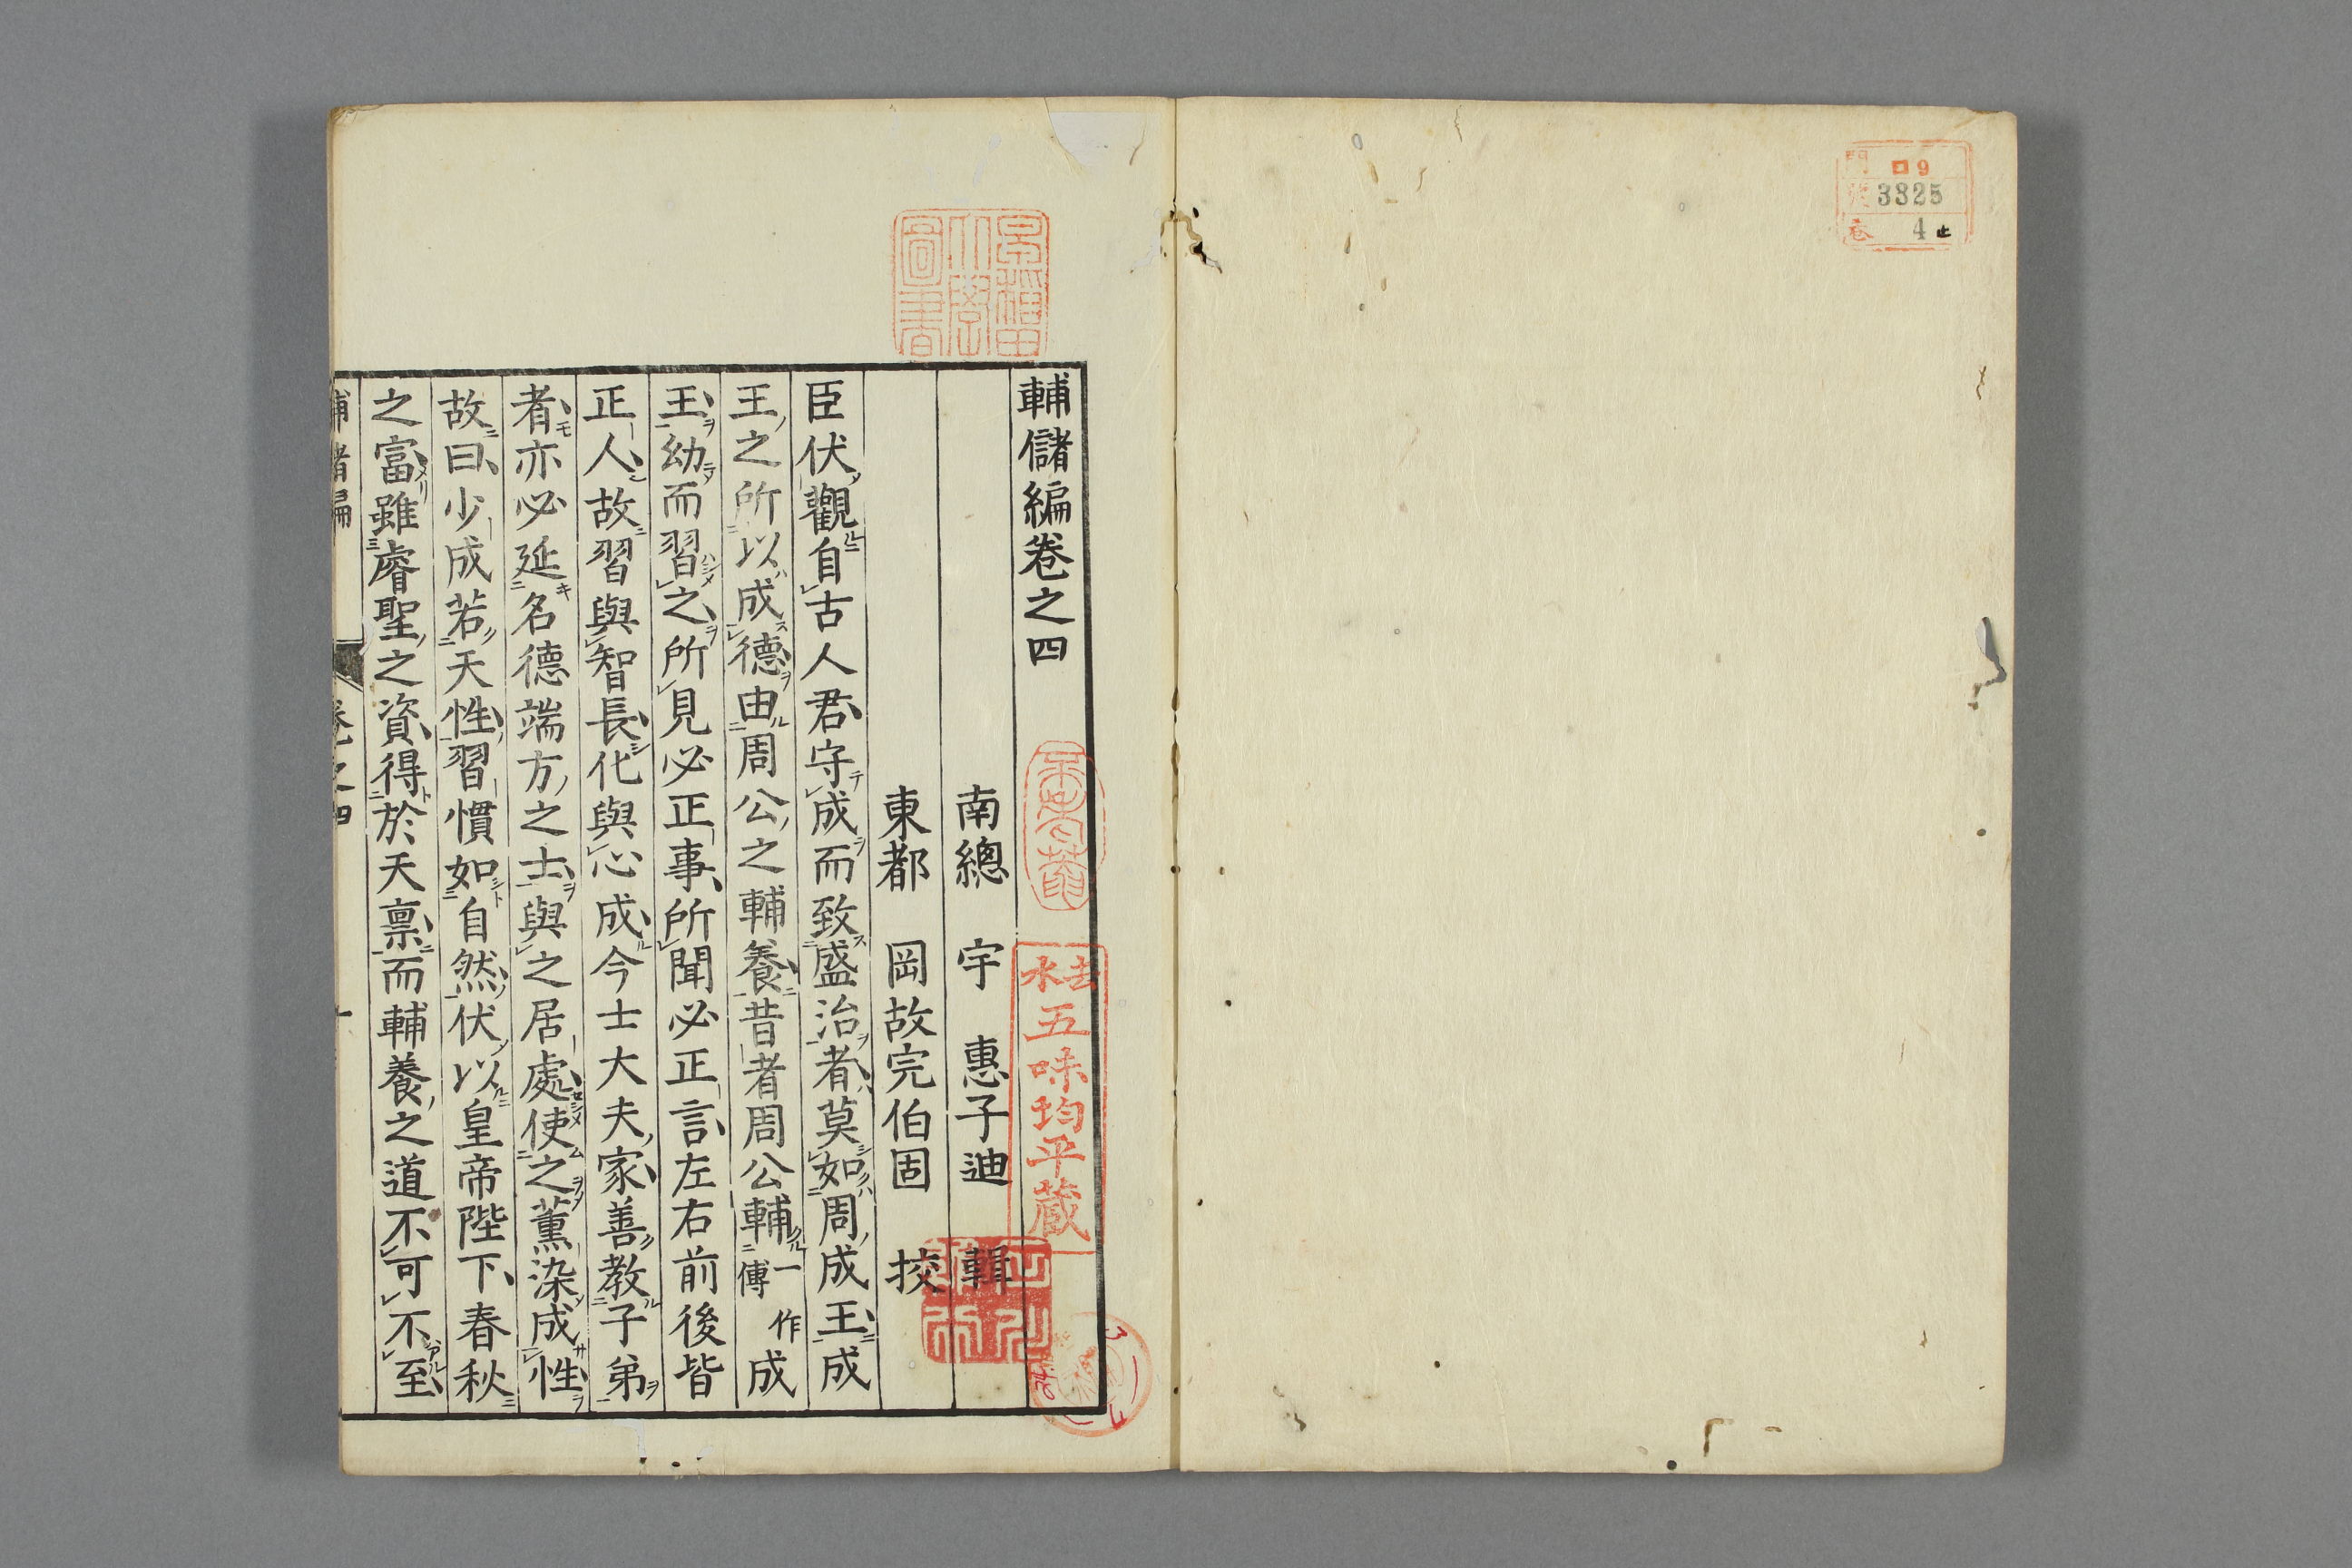 ロ9
3825
4止
輔儲編卷之四
南總 宇 惠子迪 輯
東都 岡故完伯固 挍
臣伏觀自古人君守成而致盛治者莫如周成王成
王之所以成德由周公之輔養昔者周公輔一作傅成
王幼而習之所見必正事所聞必正言左右前後皆
正人故習與智長化與心成今士大夫家善教子弟
者亦必延名德端方之士與之居處使之薰染成性
故曰少成若天性習慣如自然伏以皇帝陛下春秋
之富雖睿聖之資得於天禀而輔養之道不可不至
早稻田大學圖書
去水五味均平蔵